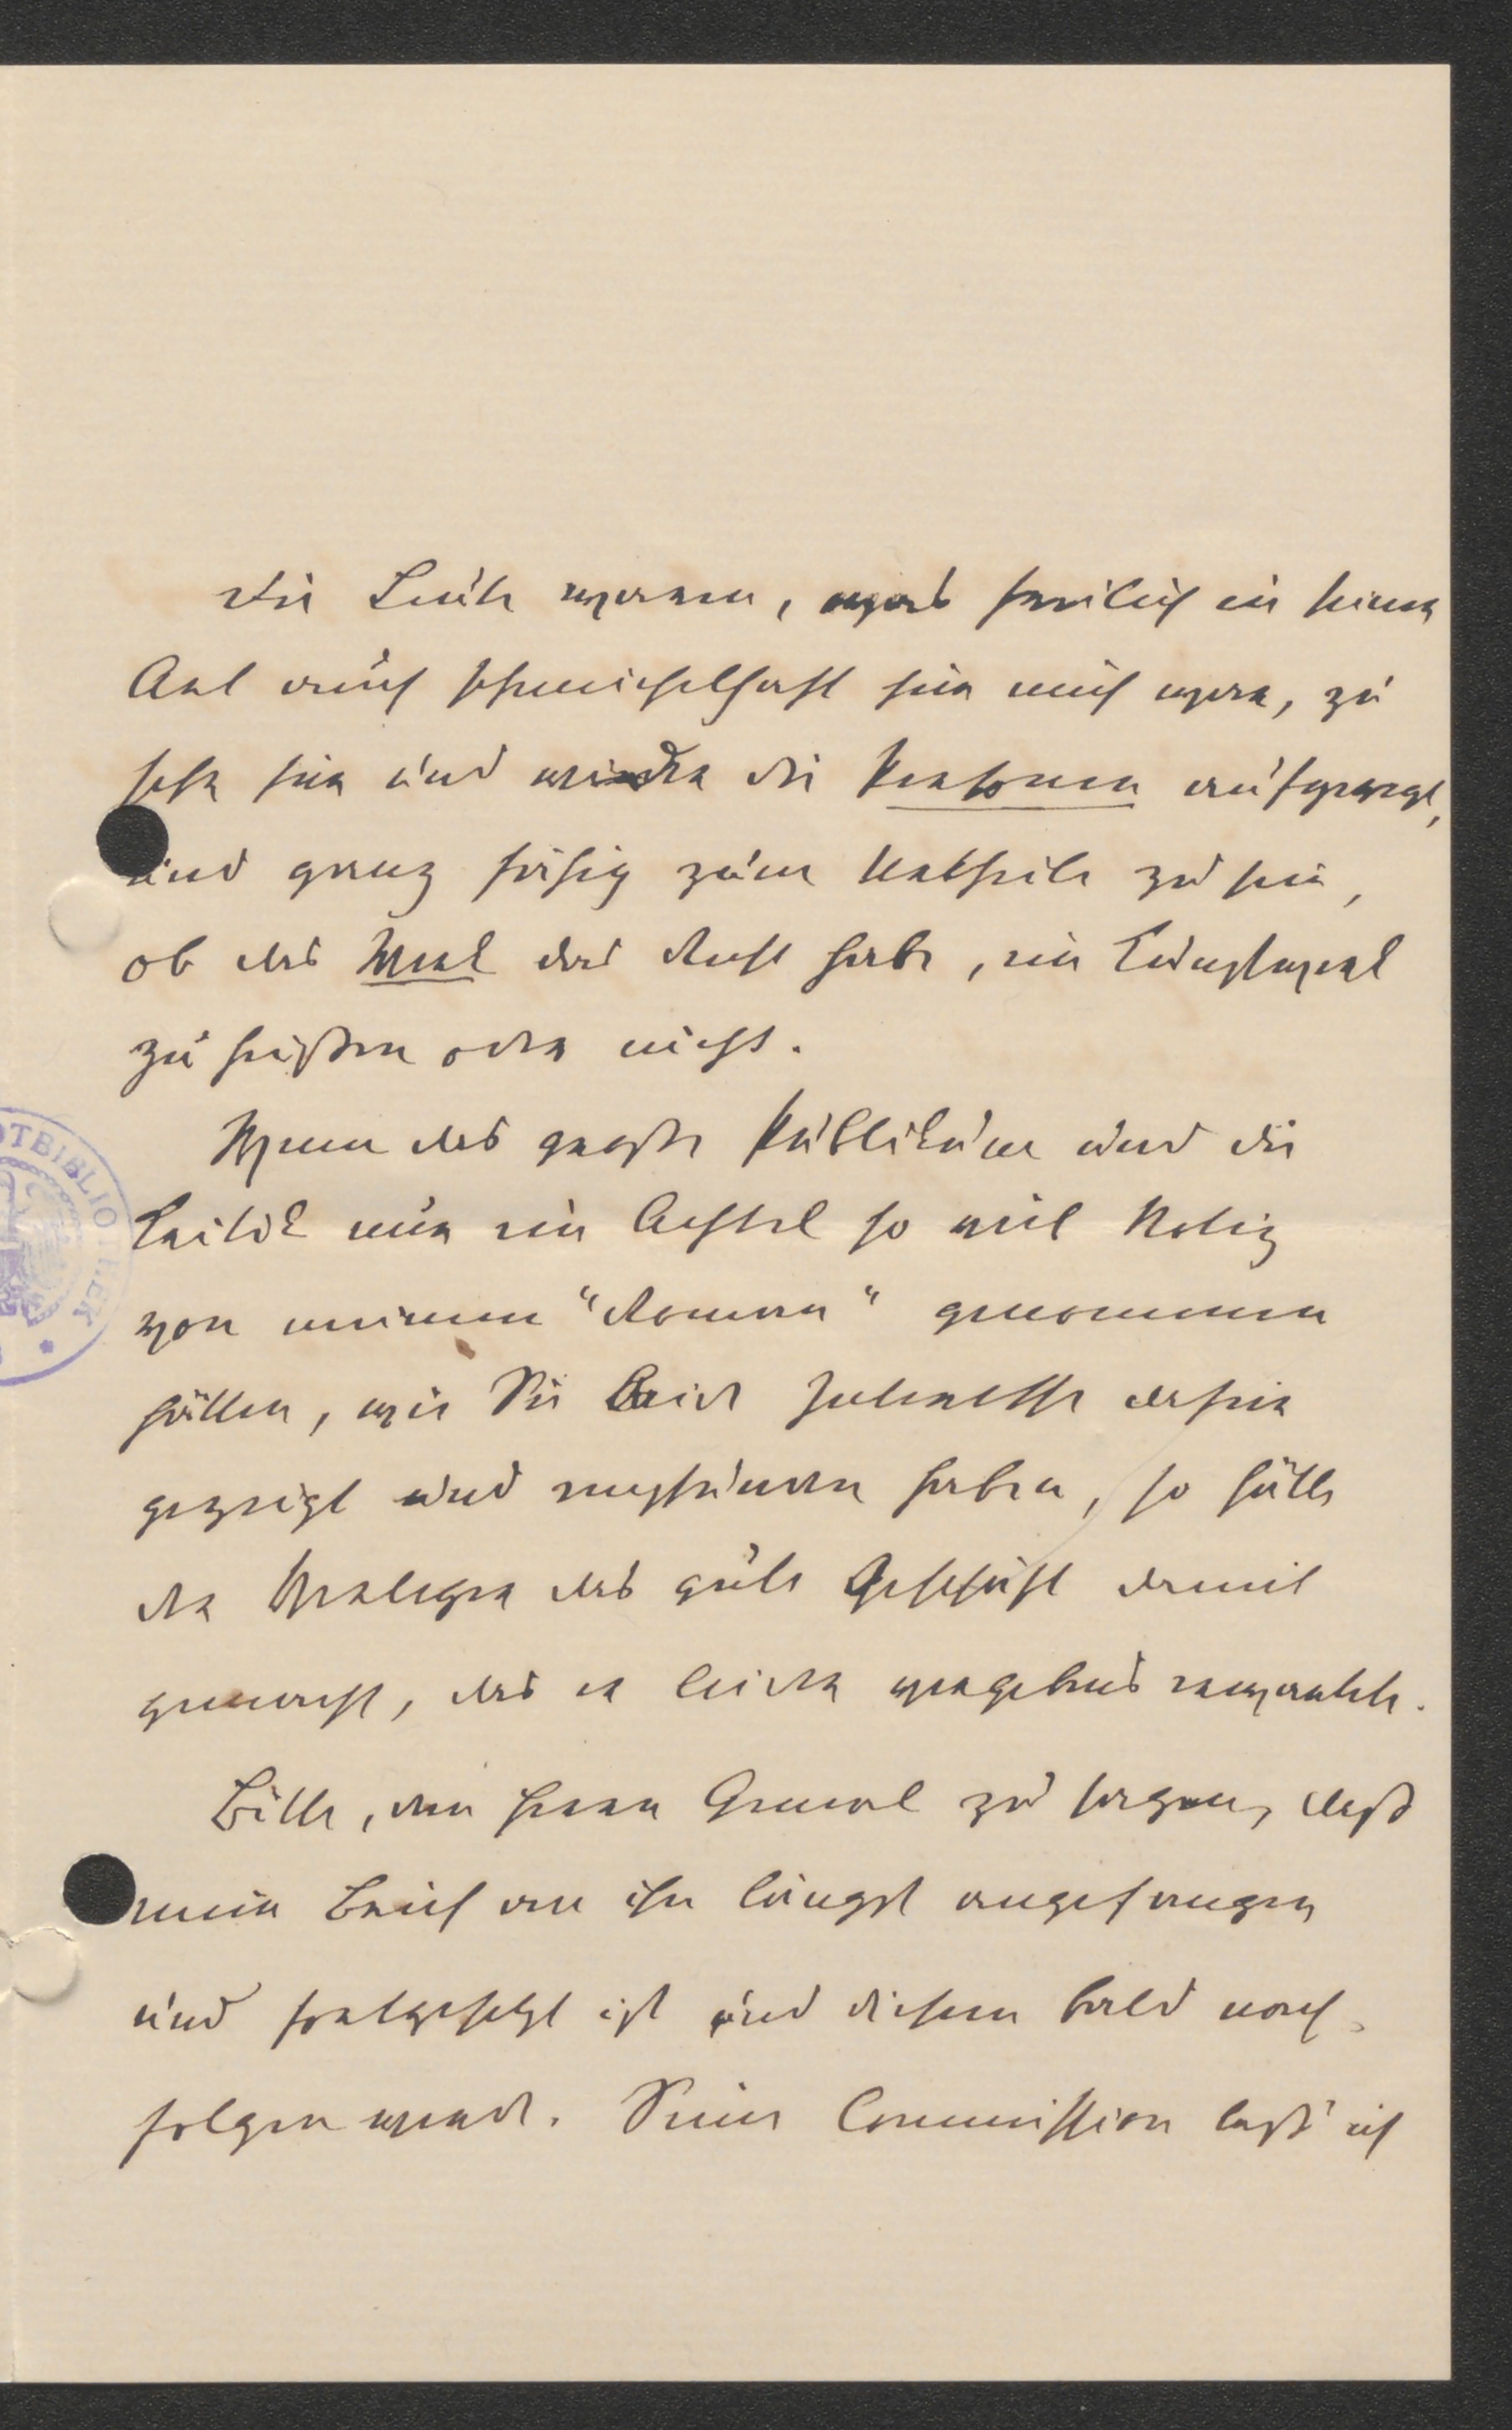 die Leute waren, was freilich in seiner
Art auch schmeichelhaft für mich war, zu
sehr für und wieder die Personen aufgeregt,
und ganz fähig zum Urtheile zu sein,
ob das Werk das Recht habe, ein Kunstwerk
zu heißen oder nicht.
Wenn das große Publikum und die
Kritik nur ein Achtel so viel Notiz
von meinem "Roman" genommen
hätten, wie Sie Beide Interesse dafür
gezeigt und empfunden haben, so hätte
der Verleger das gute Geschäft damit
gemacht, das er leider vergebens erwartete.
Bitte, dem Herrn General zu sagen, daß
mein Brief an ihn längst angefangen
und fortgesetzt ist und diesem bald nach-
folgen werde. Seine Commission lass' ich
OTBIBLIOTHEK